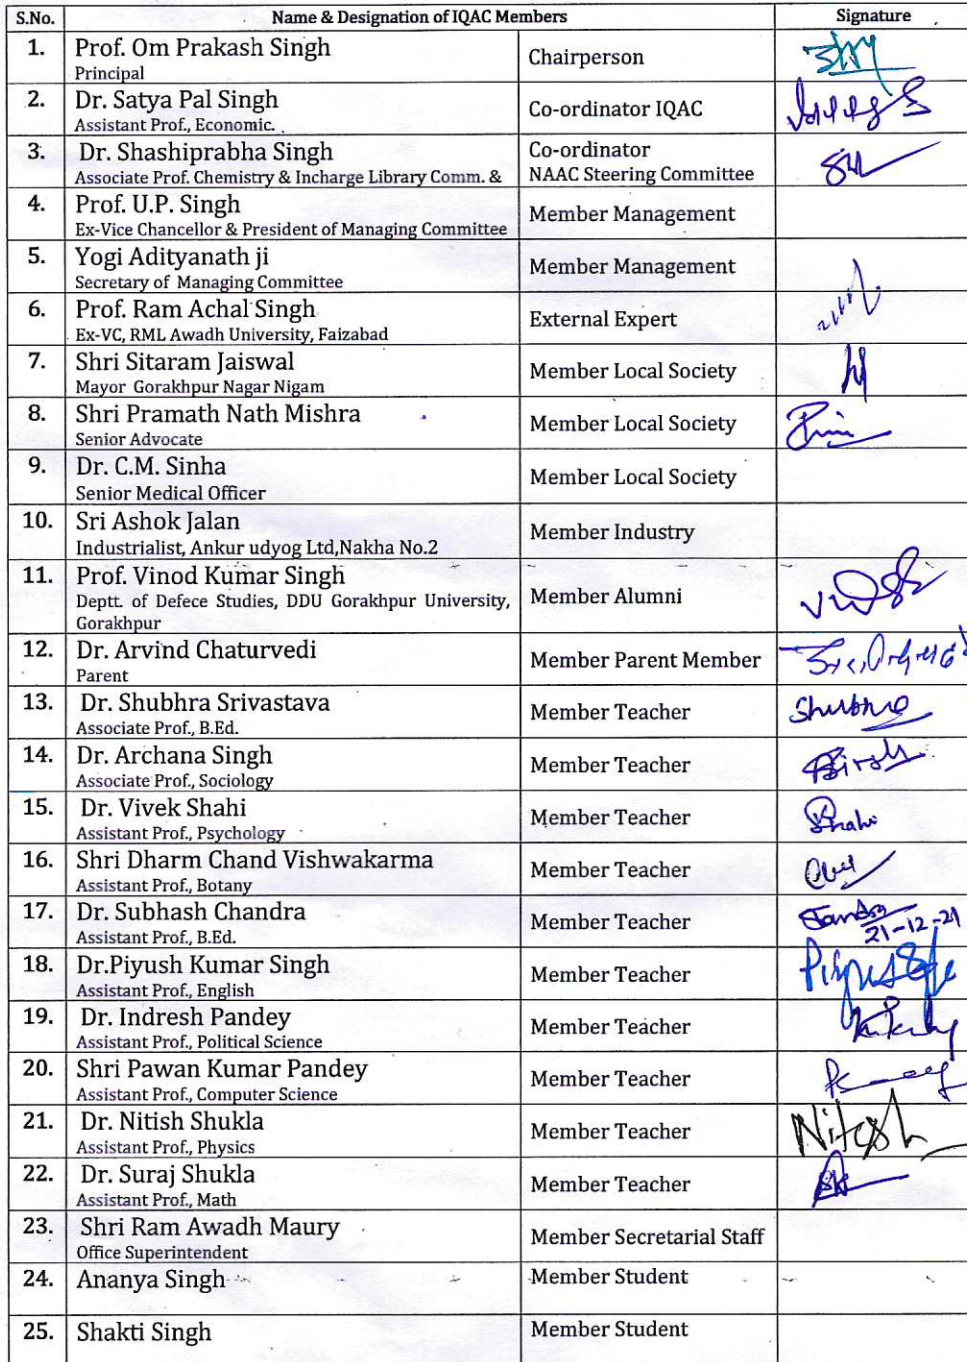 S.No. Name & Designation of IQAC Members Signature
1. Prof. Om Prakash Singh
Principal
Chairperson
2. Dr. Satya Pal Singh
Assistant Prof., Economic.
Co-ordinator IQAC
3. Dr. Shashiprabha Singh
Associate Prof. Chemistry & Incharge Library Comm. &
Co-ordinator
NAAC Steering Committee
4. Prof. U.P. Singh
Ex-Vice Chancellor & President of Managing Committee
Member Management
5. Yogi Adityanath ji
Secretary of Managing Committee
Member Management
6. Prof. Ram Achal Singh
Ex-VC, RML Awadh University, Faizabad
External Expert
7. Shri Sitaram Jaiswal
Mayor Gorakhpur Nagar Nigam
Member Local Society
8. Shri Pramath Nath Mishra
Senior Advocate
Member Local Society
9. Dr. C.M. Sinha
Senior Medical Officer
Member Local Society
10. Sri Ashok Jalan
Industrialist, Ankur udyog Ltd,Nakha No.2
Member Industry
11. Prof. Vinod Kumar Singh
Deptt. of Defece Studies, DDU Gorakhpur University,
Gorakhpur
Member Alumni
12. Dr. Arvind Chaturvedi
Parent
Member Parent Member
13. Dr. Shubhra Srivastava
Associate Prof., B.Ed.
Member Teacher
Shubhra
14. Dr. Archana Singh
Associate Prof., Sociology
Member Teacher
15. Dr. Vivek Shahi
Assistant Prof., Psychology
Member Teacher
Shahi
16. Shri Dharm Chand Vishwakarma
Assistant Prof., Botany
Member Teacher
17. Dr. Subhash Chandra
Assistant Prof., B.Ed.
Member Teacher
21-12-21
18. Dr.Piyush Kumar Singh
Assistant Prof., English
Member Teacher
19. Dr. Indresh Pandey
Assistant Prof., Political Science
Member Teacher
20. Shri Pawan Kumar Pandey
Assistant Prof., Computer Science
Member Teacher
21. Dr. Nitish Shukla
Assistant Prof., Physics
Member Teacher
Nitesh
22. Dr. Suraj Shukla
Assistant Prof., Math
Member Teacher
23. Shri Ram Awadh Maury
Office Superintendent
Member Secretarial Staff
24. Ananya Singh
Member Student
25. Shakti Singh
Member Student